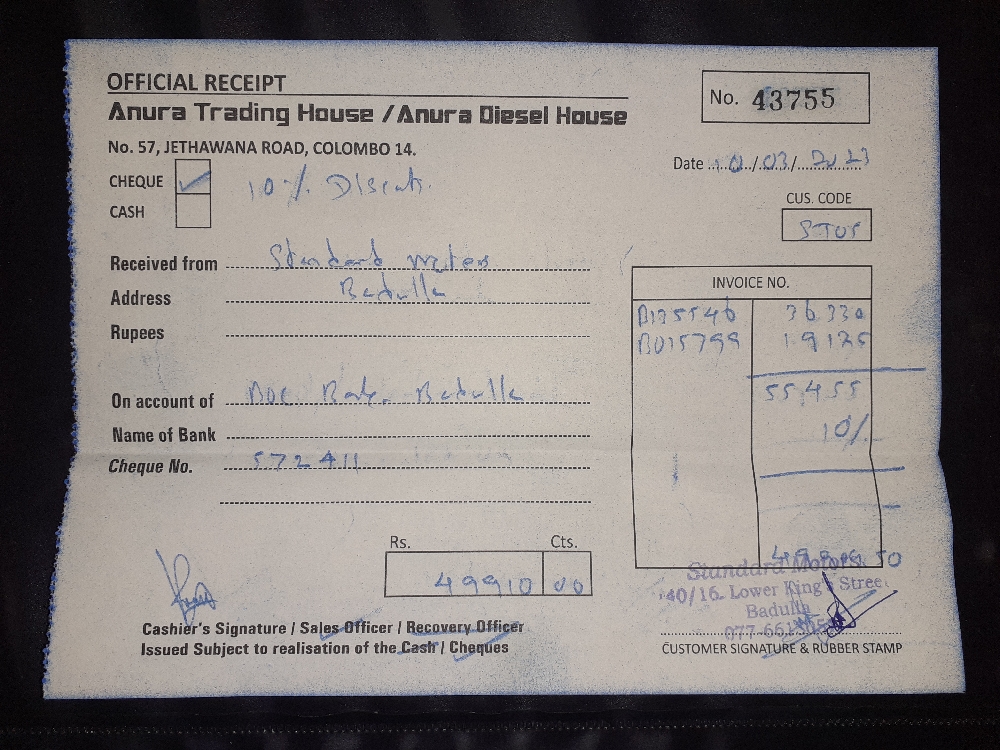 OFFICIAL RECEIPT
Anura Trading House / Anura Diesel House
No. 43755
No. 57, JETHAWANA ROAD, COLOMBO 14.
Date 10/03/2023
CHEQUE ✓ 10%
CASH
CUS. CODE
ST05
Received from Standard Motors
Address Badulla
Rupees
On account of BOC Bank. Badulla
Name of Bank
Cheque No. 572411
INVOICE NO.
36330
B015799 19125
55,455
10%
50
Rs. Cts.
49910 00
Standard Motors
40/16. Lower King's Street
Badulla
Cashier's Signature / Sales Officer / Recovery Officer
Issued Subject to realisation of the Cash / Cheques
CUSTOMER SIGNATURE & RUBBER STAMP